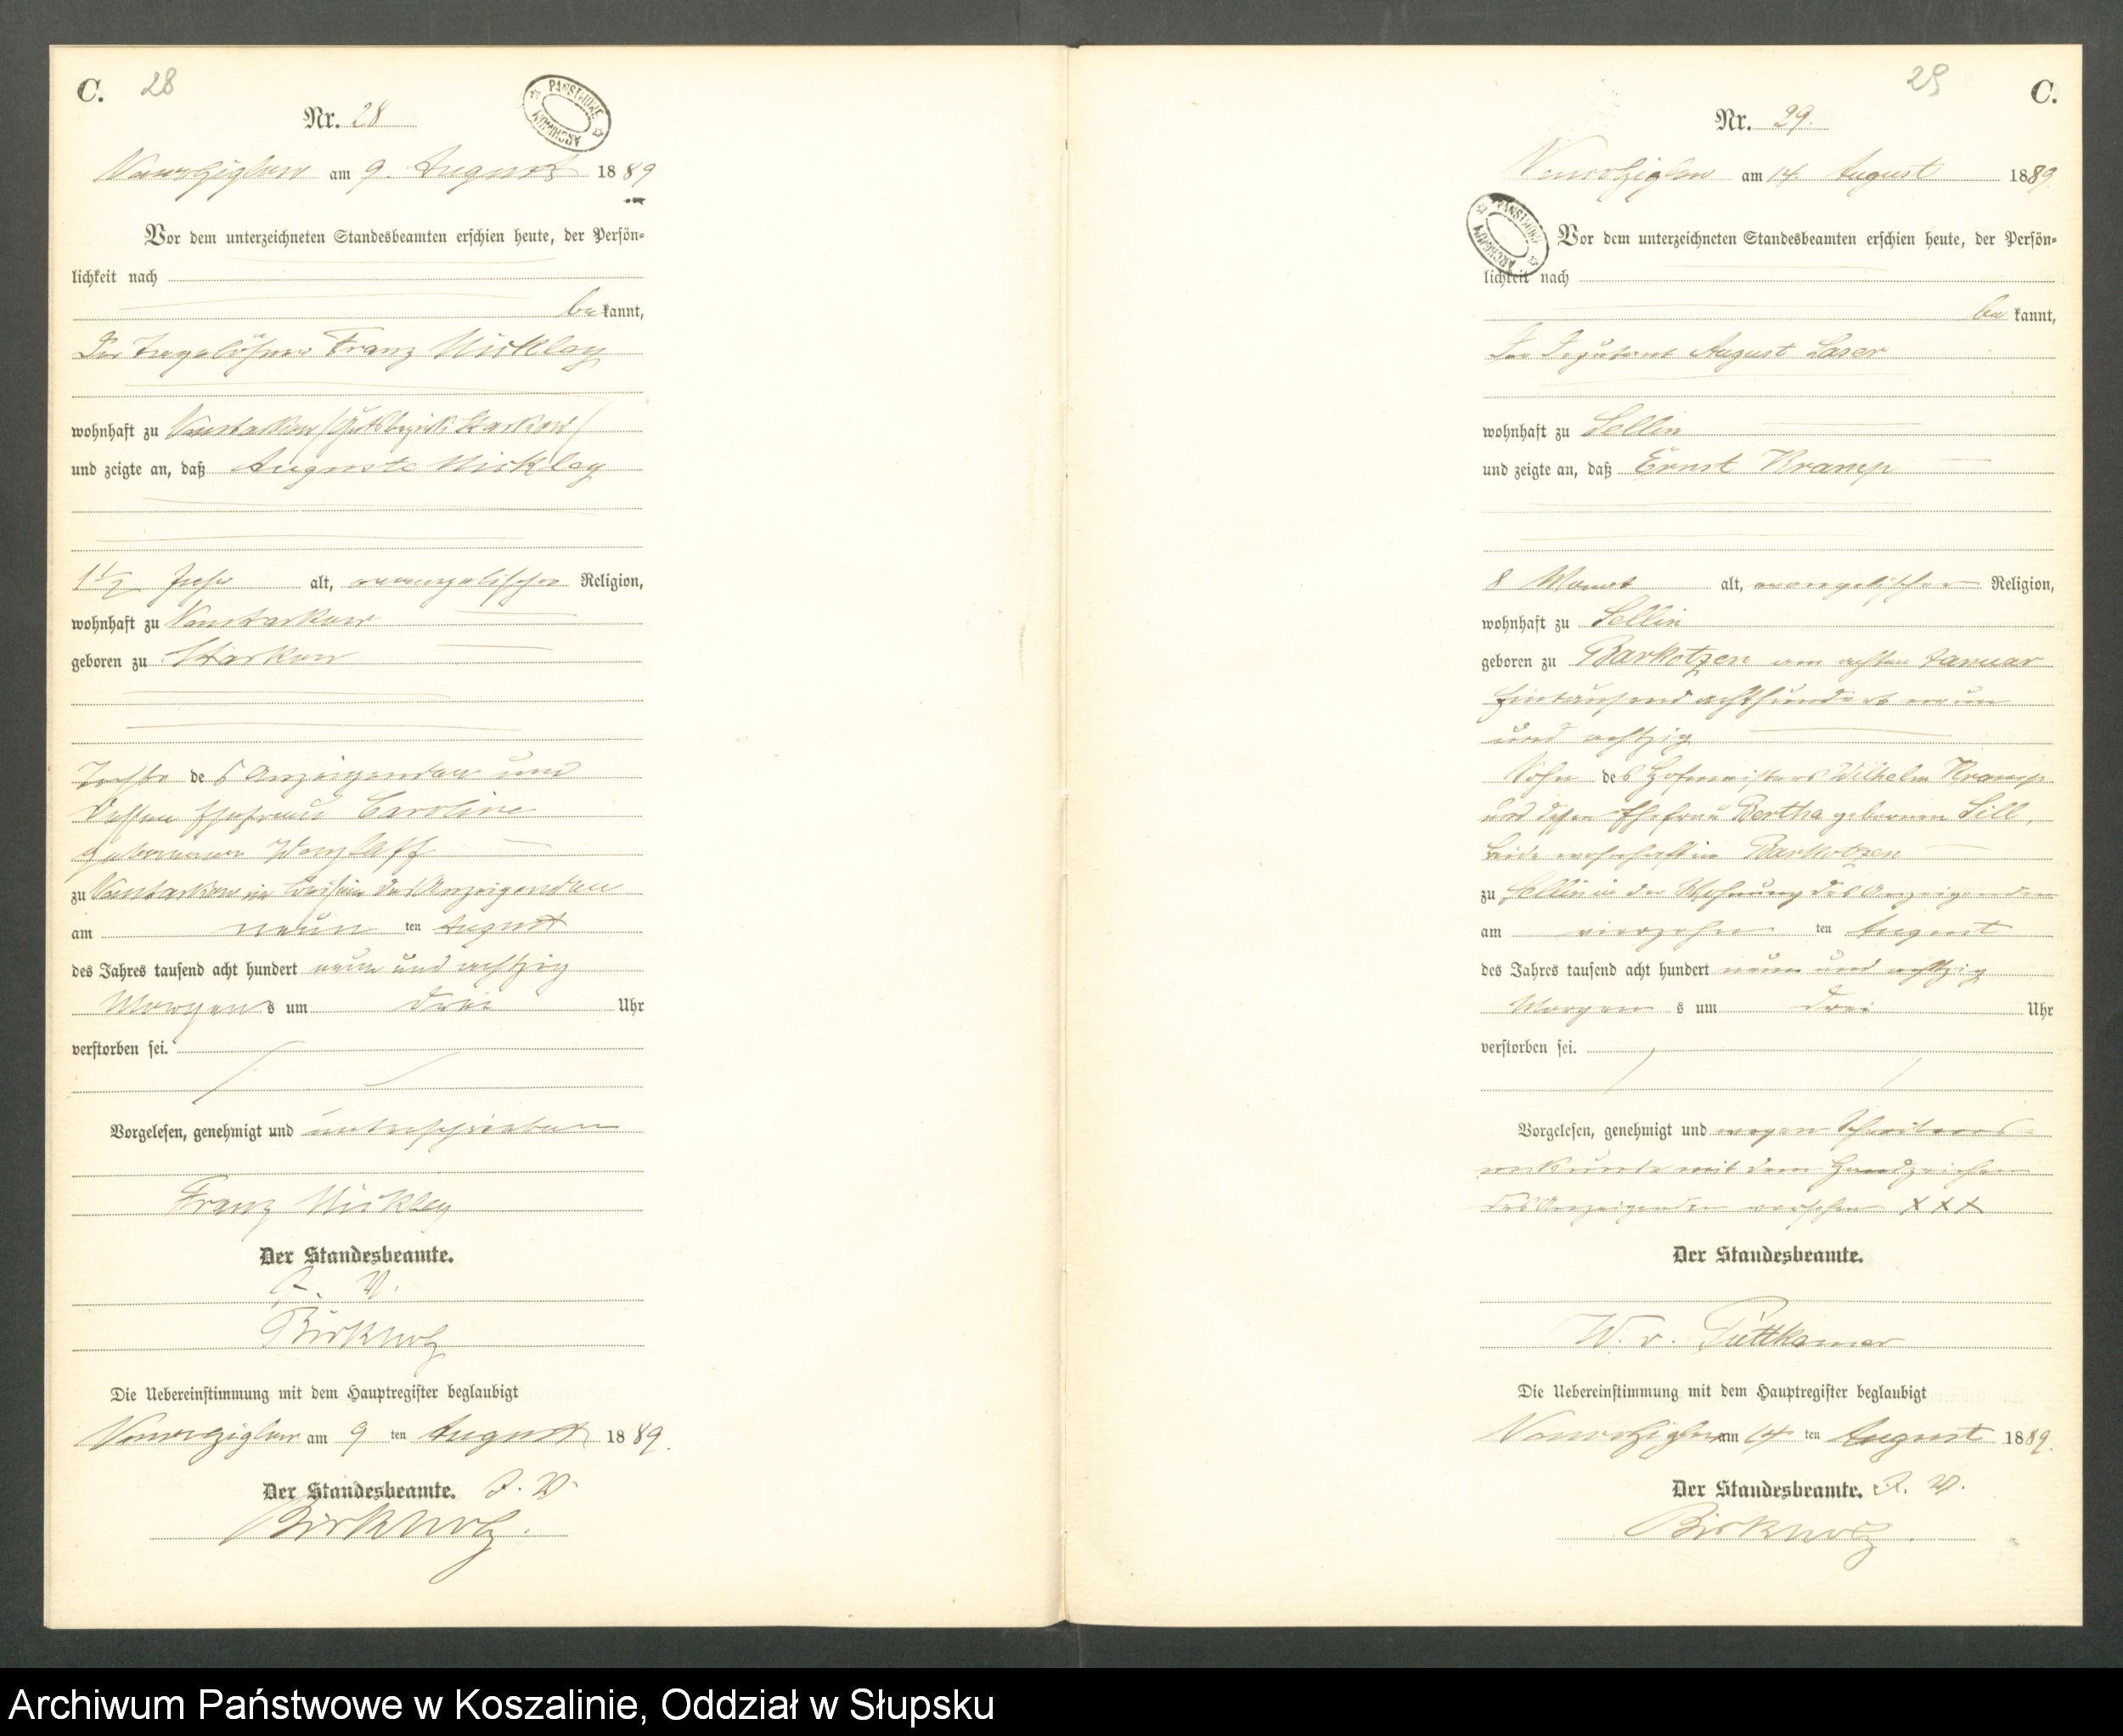 C. 28
PAŃSTWOWE ARCHIWUM
Nr. 28
am 9. August 1889
Vor dem unterzeichneten Standesbeamten erschien heute, der Persön-
lichkeit nach
bekannt,
Der Tagelöhner Franz Mickley
wohnhaft zu Neustarkow (Gutsbezirk Starkow)
und zeigte an, daß Auguste Mickley
1 1/2 Jahr alt, evangelischer Religion,
wohnhaft zu Neustarkow
geboren zu Starkow
Tochter des Anzeigenden und
dessen Ehefrau Caroline
geborenen
zu Neustarkow in des Anzeigenden
am neun ten August
des Jahres tausend acht hundert neun und achtzig
Morgens um drei Uhr
verstorben sei.
Vorgelesen, genehmigt und unterschrieben
Franz Mickley
Der Standesbeamte.
J. V.
Birkholz
Die Uebereinstimmung mit dem Hauptregister beglaubigt
am 9 ten August 1889.
Der Standesbeamte. J. V.
Birkholz.
29 C.
Nr. 29.
am 14. August 1889.
PAŃSTWOWE ARCHIWUM
Vor dem unterzeichneten Standesbeamten erschien heute, der Persön-
lichkeit nach
bekannt,
Der Deputant August Laser
wohnhaft zu Sellin
und zeigte an, daß Ernst Kramp
8 Monat alt, evangelischer Religion,
wohnhaft zu Sellin
geboren zu Barkotzen am achten Januar
Eintausend achthundert neun
und achtzig
Sohn des Hofmeisters Wilhelm Kramp
und dessen Ehefrau Bertha geborenen Sill,
beide wohnhaft in Barkotzen
zu Sellin in der Wohnung des Anzeigenden
am vierzehn ten August
des Jahres tausend acht hundert neun und achtzig
Morgens um drei Uhr
verstorben sei.
Vorgelesen, genehmigt und wegen Schreibens-
unkunde mit dem Handzeichen
des Anzeigenden versehen XXX
Der Standesbeamte.
W. v. Puttkamer
Die Uebereinstimmung mit dem Hauptregister beglaubigt
am 14 ten August 1889.
Der Standesbeamte. J. V.
Birkholz.
Archiwum Państwowe w Koszalinie, Oddział w Słupsku